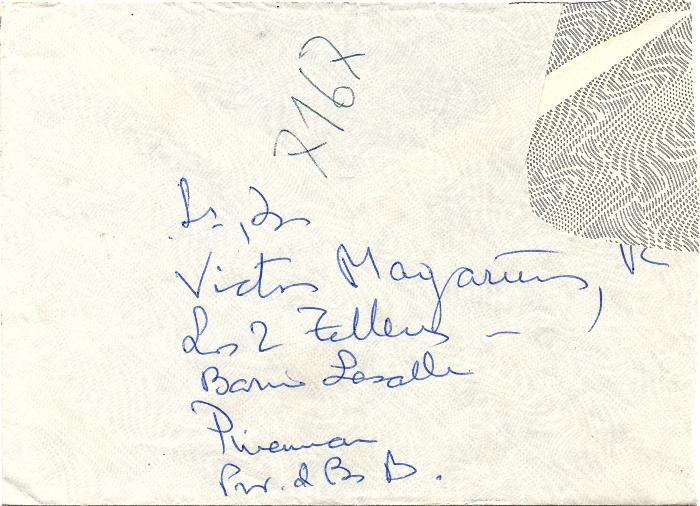 7167
Sr. Dn
Victor Magariños, D
Los 2 Talleres –
Barrio Lasalle
Pinamar
Prov. d Bs As.